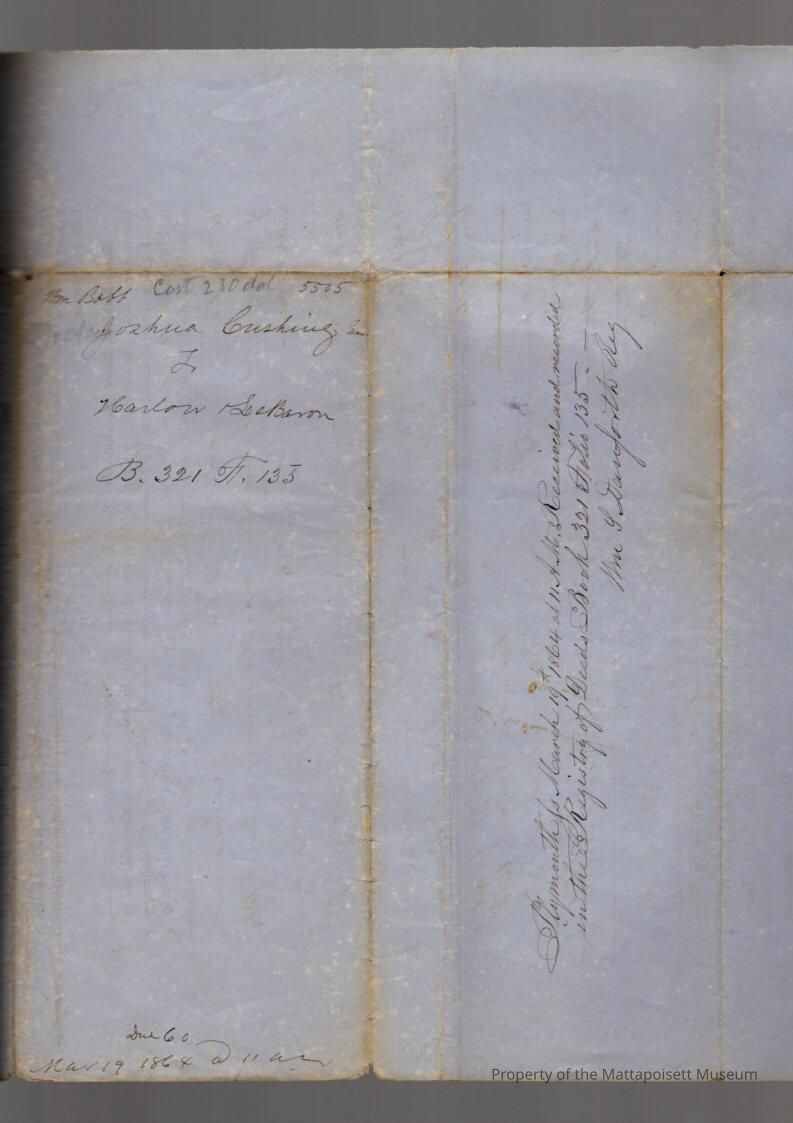 Wm Babb Cost 230 dol 5505
Joshua Cushing Exr
To
Harlow & LeBaron
B. 321 F. 135
Due 60
Mar 19 1864 @ 11 am
Plymouth ss March 19th 1864 at 11 A.M. Received and recorded
in the Registry of Deeds Book 321 Folio 135
Wm S. Danforth Reg
Property of the Mattapoisett Museum